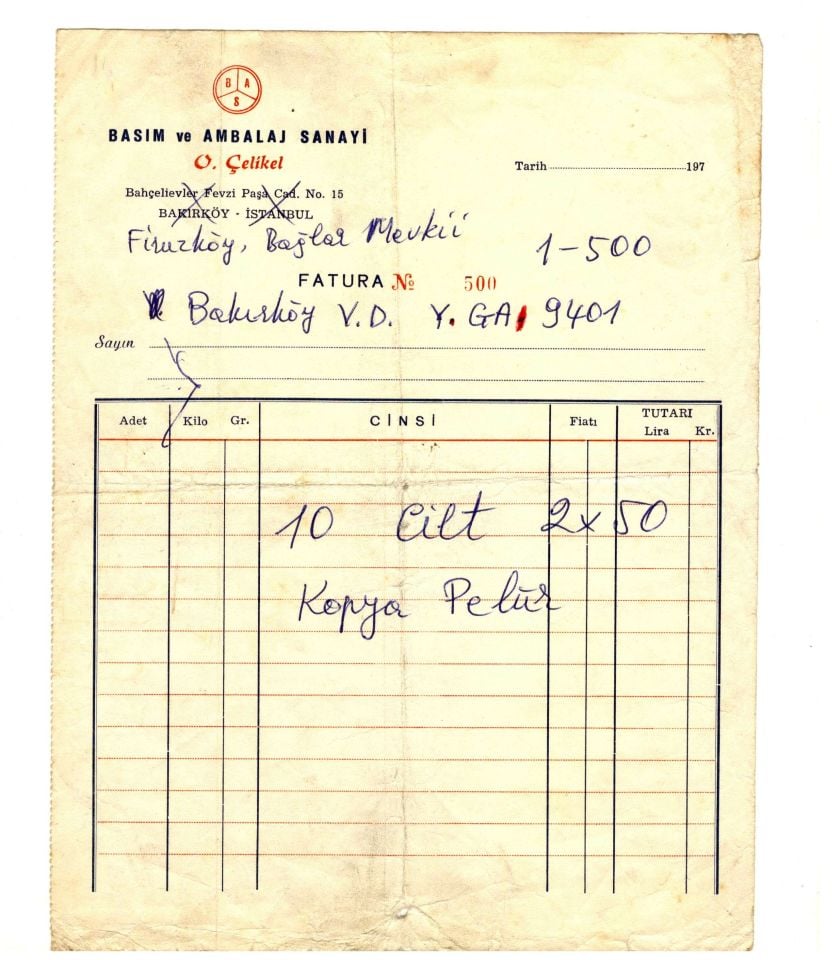 B A S
BASIM ve AMBALAJ SANAYİ
O. Çelikel
Tarih 197
Bahçelievler Fevzi Paşa Cad. No. 15
BAKIRKÖY - İSTANBUL
Firuzköy, Bağlar Mevkii 1-500
FATURA № 500
Bakırköy V.D. Y. GA 9401
Sayın
Adet Kilo Gr. CİNSİ Fiatı TUTARI
Lira Kr.
10 Cilt 2x50
Kopya Pelür